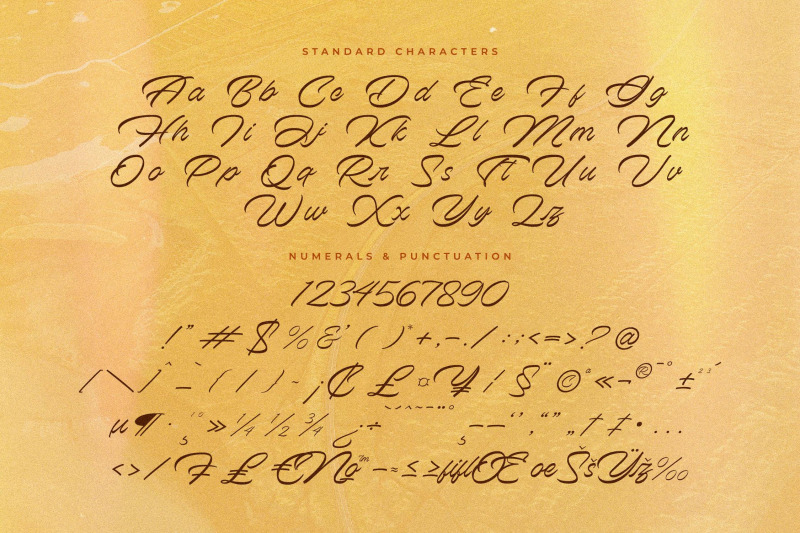 STANDARD CHARACTERS
Aa Bb Cc Dd Ee Ff Gg
Hh Ii Jj Kk Ll Mm Nn
Oo Pp Qq Rr Ss Tt Uu Vv
Ww Xx Yy Zz
NUMERALS & PUNCTUATION
1234567890
!"#$%&'()*+,-./:;<=>?@
/\]^_{/}~¡¢£¤¥¦§¨©ª«¬®¯°±²³´
µ¶·¸¹º»¼½¾¿÷ˇ˘ˆ˜¯˝˚¸–—‘’‚“”„†‡•…
‹›⁄₣₤€№™−≈≤≥fiflŒœŠšŸž‰